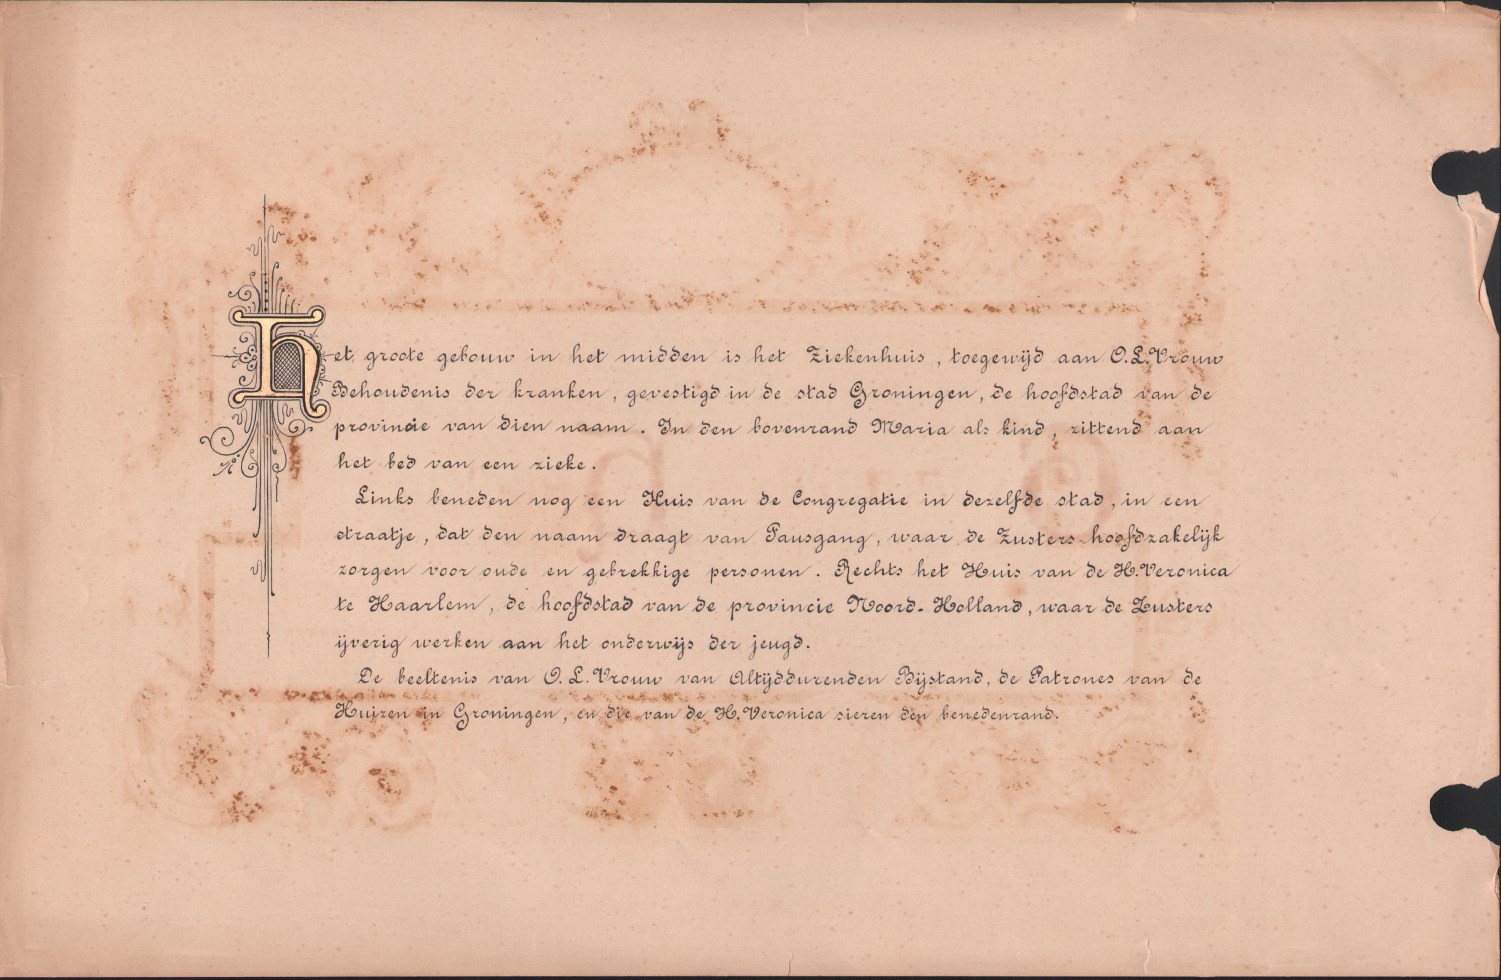 Het groote gebouw in het midden is het Ziekenhuis, toegewijd aan O.L.Vrouw
Behoudenis der kranken, gevestigd in de stad Groningen, de hoofdstad van de
provincie van dien naam. In den bovenrand Maria als kind, zittend aan
het bed van een zieke.
Links beneden nog een Huis van de Congregatie in dezelfde stad, in een
straatje, dat den naam draagt van Pausgang, waar de Zusters hoofdzakelijk
zorgen voor oude en gebrekkige personen. Rechts het Huis van de H.Veronica
te Haarlem, de hoofdstad van de provincie Noord-Holland, waar de Zusters
ijverig werken aan het onderwijs der jeugd.
De beeltenis van O.L.Vrouw van Altijddurenden Bijstand, de Patrones van de
Huizen in Groningen, en die van de H.Veronica sieren den benedenrand.